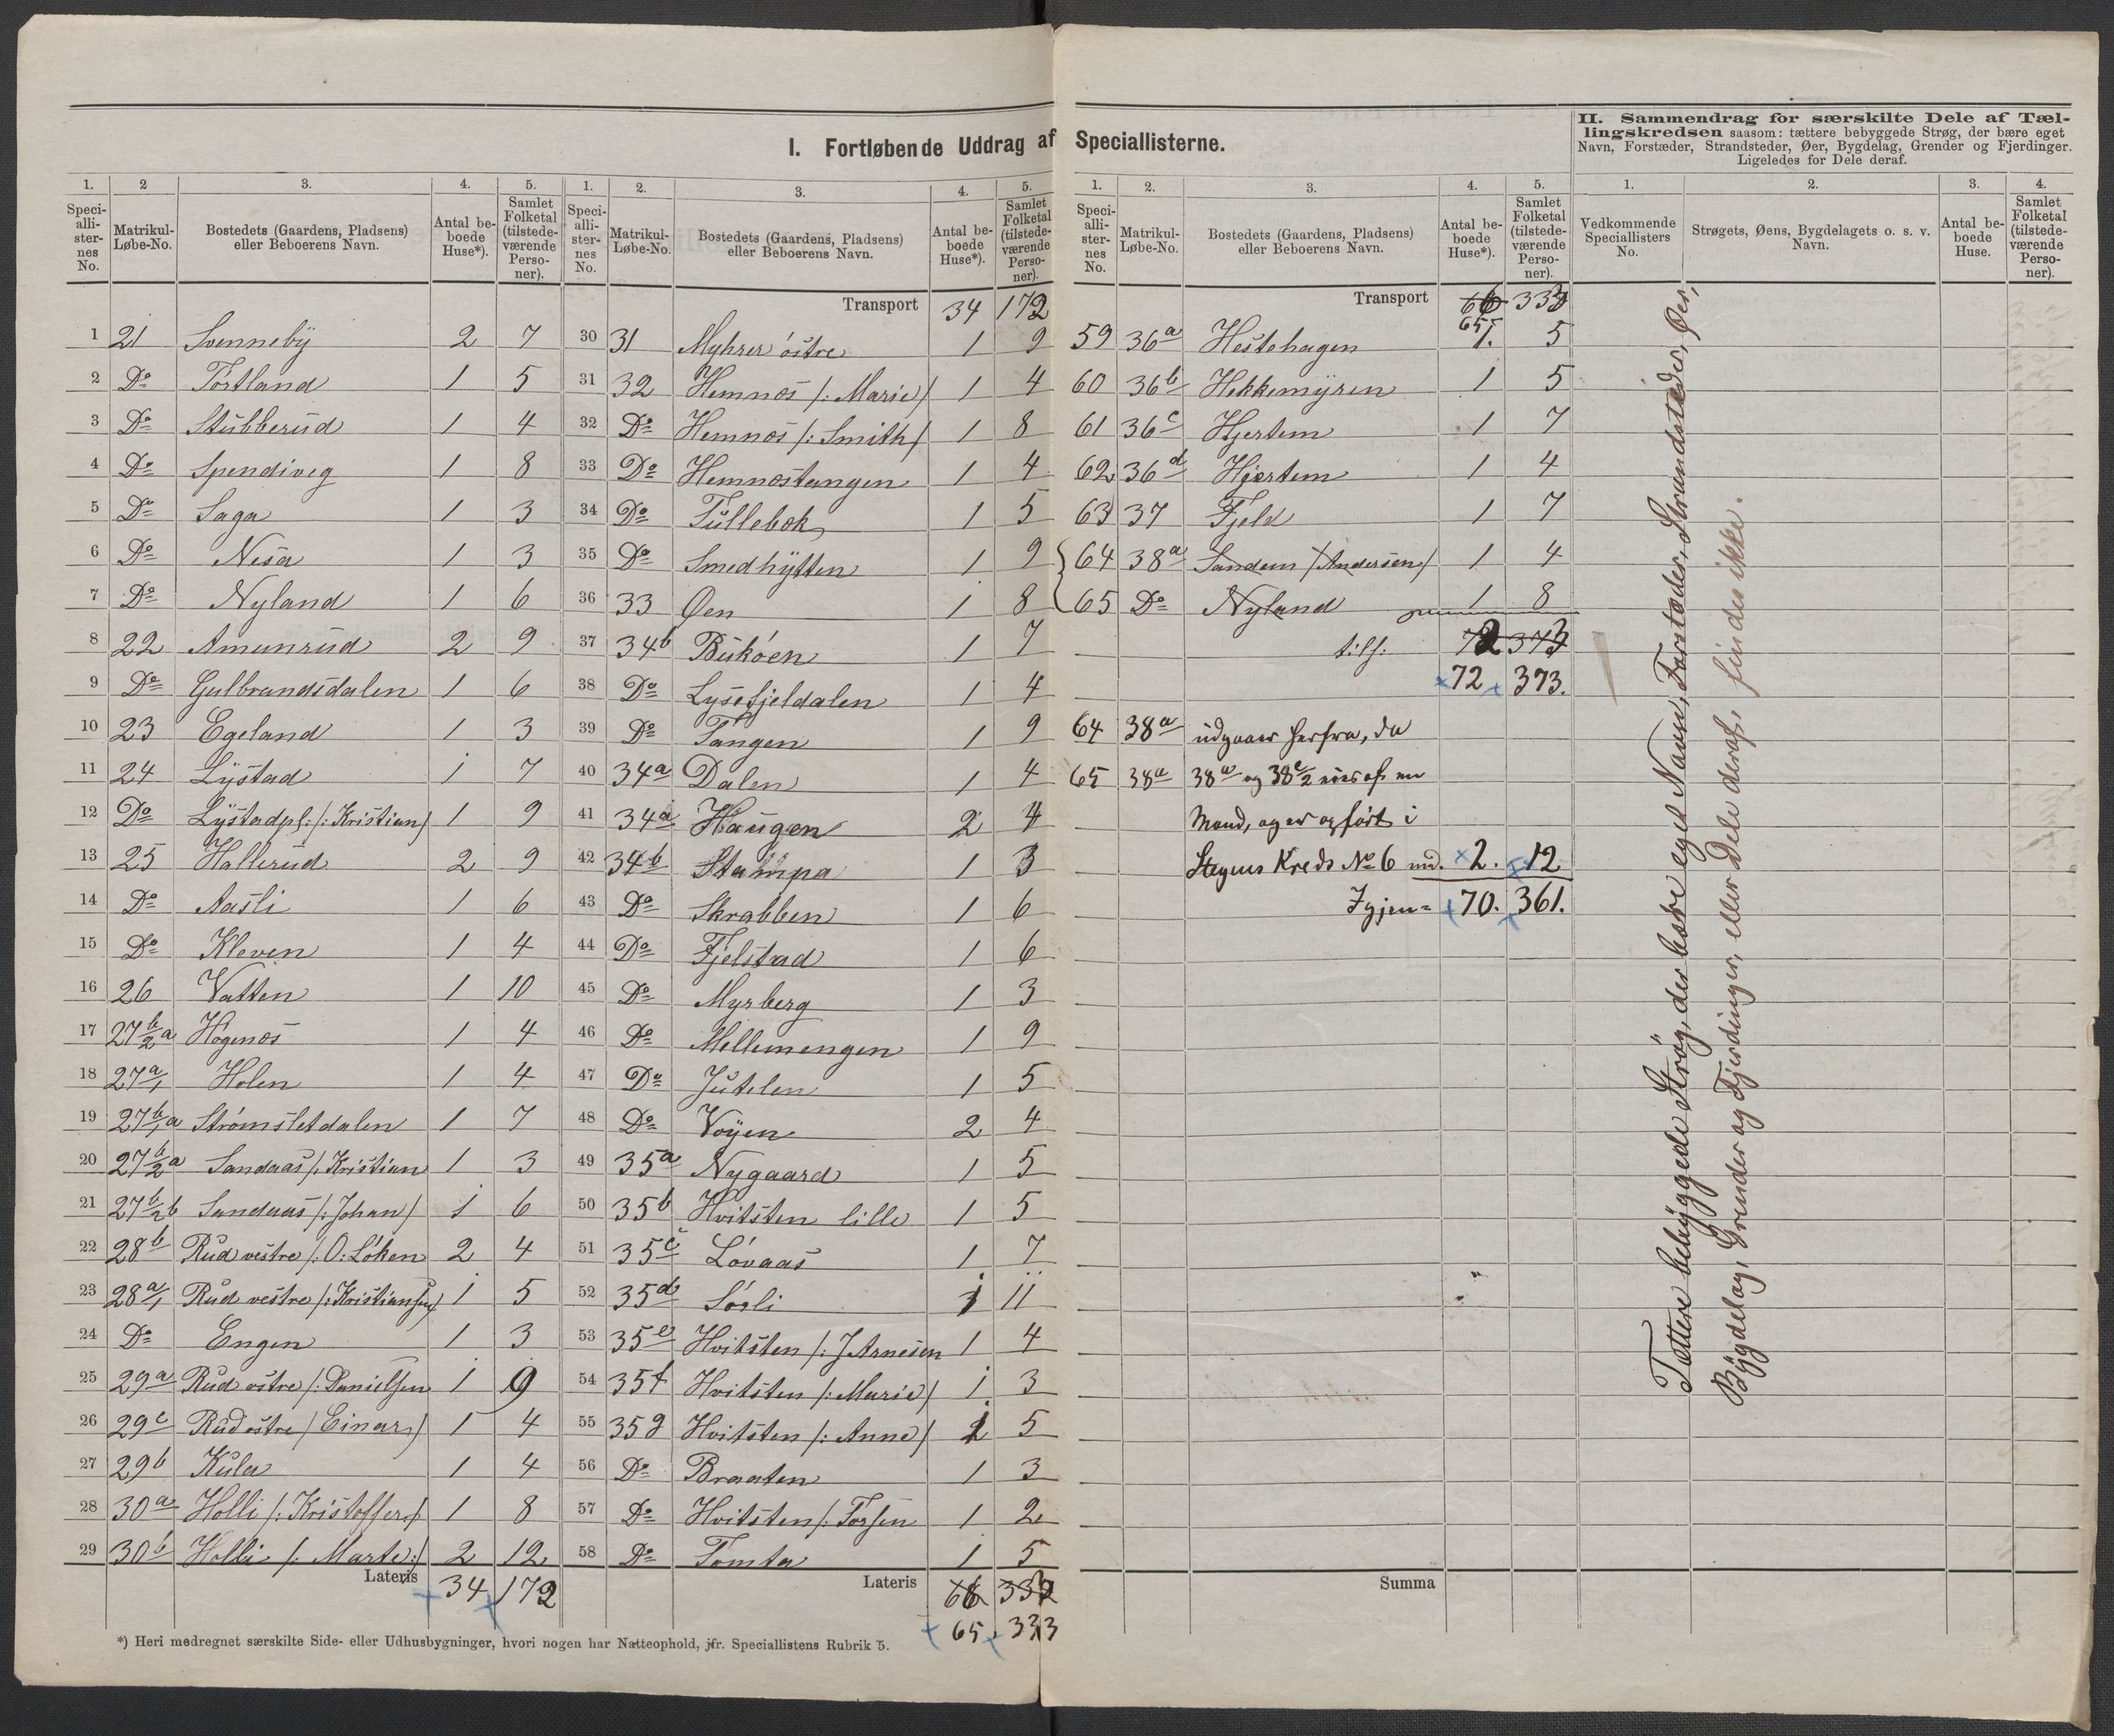 I. Fortløbende Uddrag af Speciallisterne.
1. 2 3. 4. 5.
Speciallisternes No. Matrikul-Løbe-No. Bostedets (Gaardens, Pladsens) eller Beboerens Navn. Antal beboede Huse*). Samlet Folketal (tilstedeværende Personer).
1 21 Svenneby 2 7
2 Do Törtland 1 5
3 Do Stubberud 1 4
4 Do Spendiveg 1 8
5 Do Saga 1 3
6 Do Nesa 1 3
7 Do Nyland 1 6
8 22 Amunrud 2 9
9 Do Gulbrandsdalen 1 6
10 23 Egeland 1 3
11 24 Lystad 1 7
12 Do Lystadpl: /: Kristian/ 1 9
13 25 Hallerud 2 9
14 Do Aasli 1 6
15 Do Kleven 1 4
16 26 Vatten 1 10
17 27 b/2 a Högenæs 1 4
18 27 a/1 Holen 1 4
19 27 b/1 a Strømsletdalen 1 7
20 27 b/2 a Sandaas /: Kristian 1 3
21 27 b/2 b Sandaas /: Johan/ 1 6
22 28b Rud vestre /: O: Löken 2 4
23 28 a/1 Rud vestre /: Kristiansen/ 1 5
24 Do Engen 1 3
25 29a Rud östre /: Danielsen 1 9
26 29c Rud östre / Einar/ 1 4
27 29b Kula 1 4
28 30a Holli /: Kristoffer/ 1 8
29 30b Holli /: Marte:/ 2 12
Lateris 34 172
*) Heri medregnet særskilte Side- eller Udhusbygninger, hvori nogen har Natteophold, jfr. Speciallistens Rubrik 5.
1. 2. 3. 4. 5.
Speciallisternes No. Matrikul-Løbe-No. Bostedets (Gaardens, Pladsens) eller Beboerens Navn. Antal beboede Huse*). Samlet Folketal (tilstedeværende Personer).
Transport 34 172
30 31 Myhrer östre 1 9
31 32 Hemnæs /: Marie/ 1 4
32 Do Hemnæs /: Smith/ 1 8
33 Do Hemnæstangen 1 4
34 Do Tullebek 1 5
35 Do Smedhytten 1 9
36 33 Øen 1 8
37 34b Buköen 1 7
38 Do Lysefjeldalen 1 4
39 Do Tangen 1 9
40 34a Dalen 1 4
41 34a Haugen 2 4
42 34b Stampa 1 3
43 Do Skrabben 1 6
44 Do Fjelstad 1 6
45 Do Myrberg 1 3
46 Do Mellemengen 1 9
47 Do Jutelen 1 5
48 Do Voyen 2 4
49 35a Nygaard 1 5
50 35b Hvitsten lille 1 5
51 35c Lövaas 1 7
52 35d Sörli 1 11
53 35e Hvitsten /: J Arnesen 1 4
54 35f Hvitsten /: Marie/ 1 3
55 35g Hvitsten /: Anne/ 1 5
56 Do Braaten 1 3
57 Do Hvitsten /: Torsen 1 2
58 Do Tomta 1 5
Lateris 66 332
65 333
1. 2. 3. 4. 5.
Speciallisternes No. Matrikul-Løbe-No. Bostedets (Gaardens, Pladsens) eller Beboerens Navn. Antal beboede Huse*). Samlet Folketal (tilstedeværende Personer).
Transport 66 333
65
59 36a Hestehagen 1. 5
60 36b Hekkemyren 1 5
61 36c Hjertem 1 7
62 36d Hjertem 1 4
63 37 Fjeld 1 7
64 38a Sandem /Andersen/ 1 4
65 Do Nyland 1 8
tils: 72 373
72 373.
64 38a udgaaer herfra, da
65 38a 38a og 38 c/2 eies af en
Mand, og er opført i
Stegens Kreds No 6 md. 2. 12
Igjen = 70. 361.
Summa
II. Sammendrag for særskilte Dele af Tællingskredsen saasom: tættere bebyggede Strøg, der bære eget
Navn, Forstæder, Strandsteder, Øer, Bygdelag, Grender og Fjerdinger.
Ligeledes for Dele deraf.
1. 2. 3. 4.
Vedkommende Speciallisters No. Strøgets, Øens, Bygdelagets o. s. v. Navn. Antal beboede Huse. Samlet Folketal (tilstedeværende Personer).
Tættere bebyggede Strøg, der bære eget Navn, Forstæder, Strandsteder, Øer,
Bygdelag, Grender og Fjerdinger, eller Dele deraf, findes ikke.